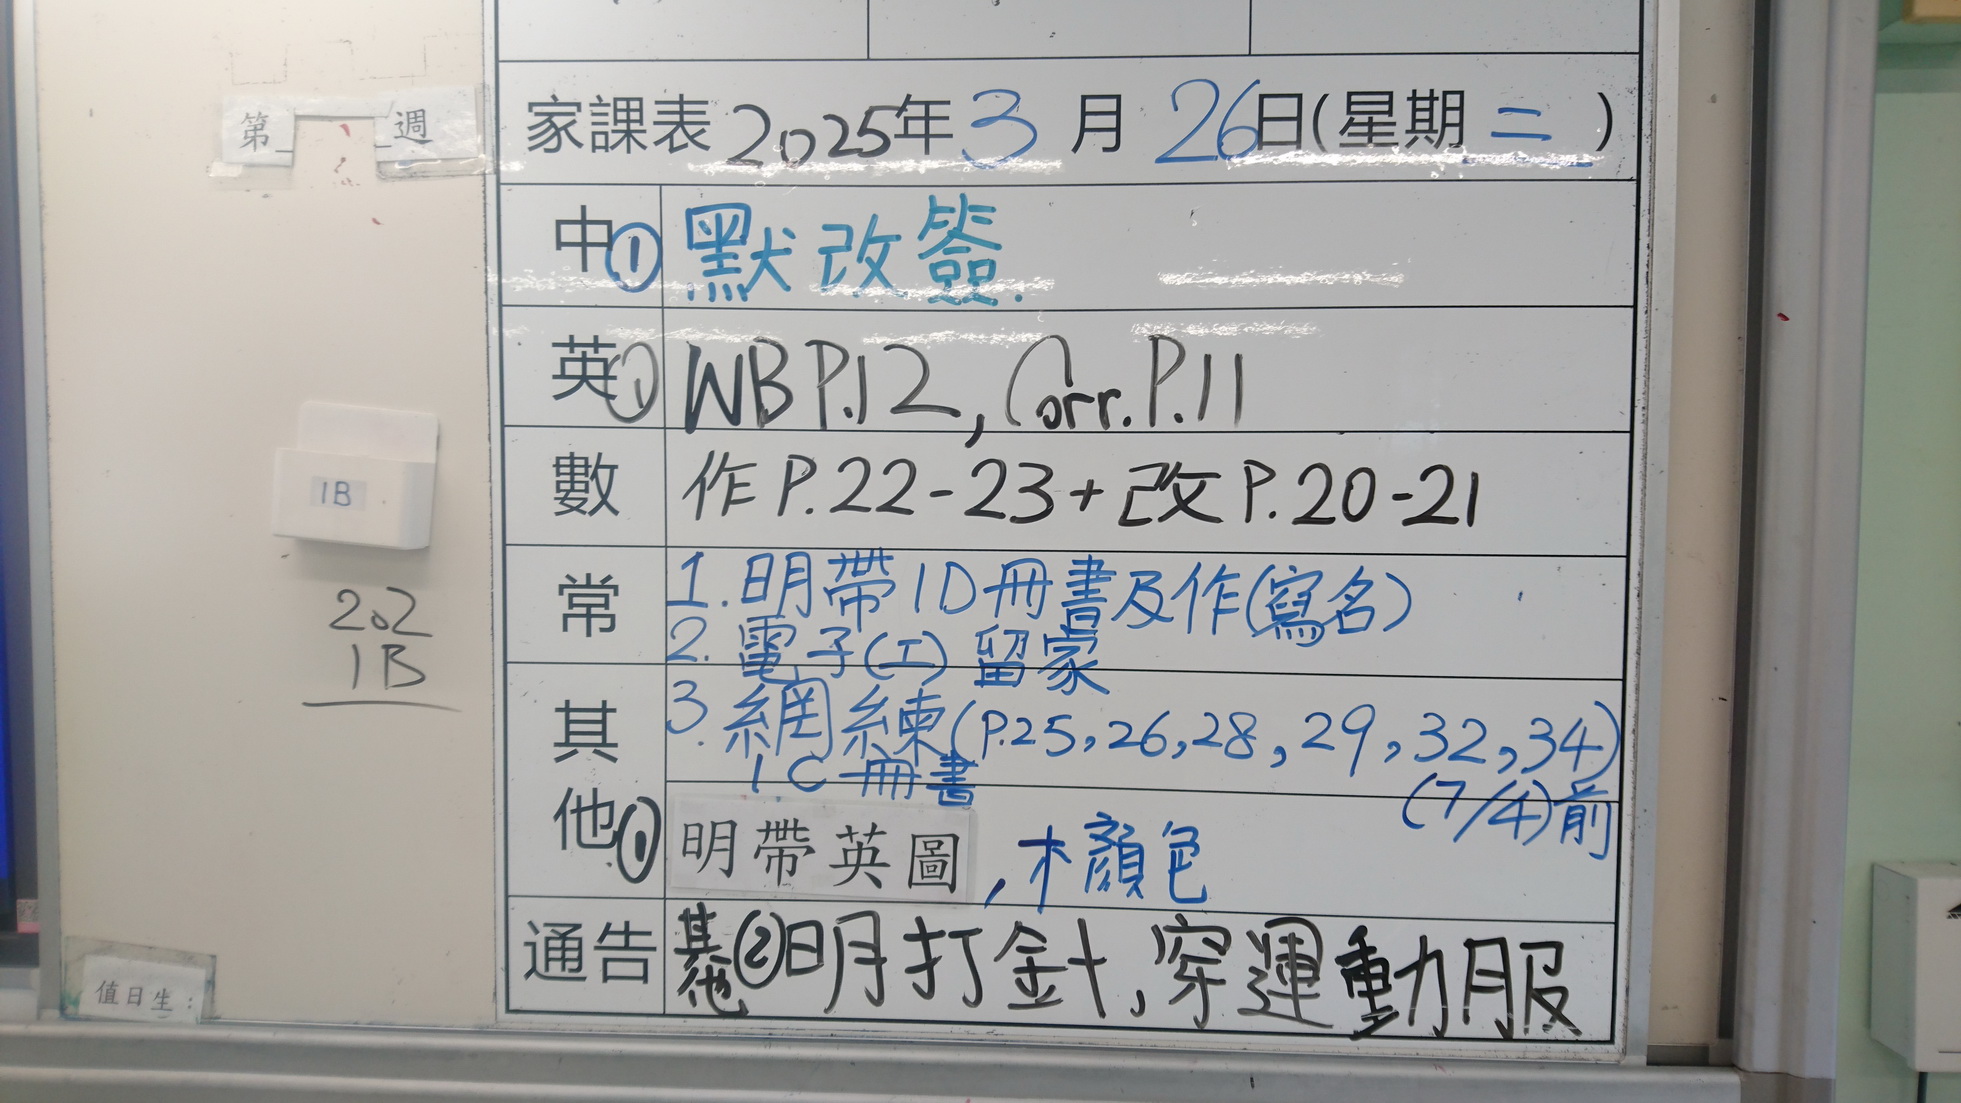 第 週
家課表 2025年 3 月 26日(星期 二 )
中① 默改簽.
英① WB P.12, Corr. P.11
1B
數 作 P.22-23 + 改 P.20-21
常 1. 明帶 1D 冊書及作(寫名)
2. 電子(工) 留家
202
1B
其他① 3. 網練(P.25, 26, 28, 29, 32, 34)
1C 冊書 (7/4)前
明帶英圖, 木顏色
通告 其他②明打針, 穿運動服
值日生: